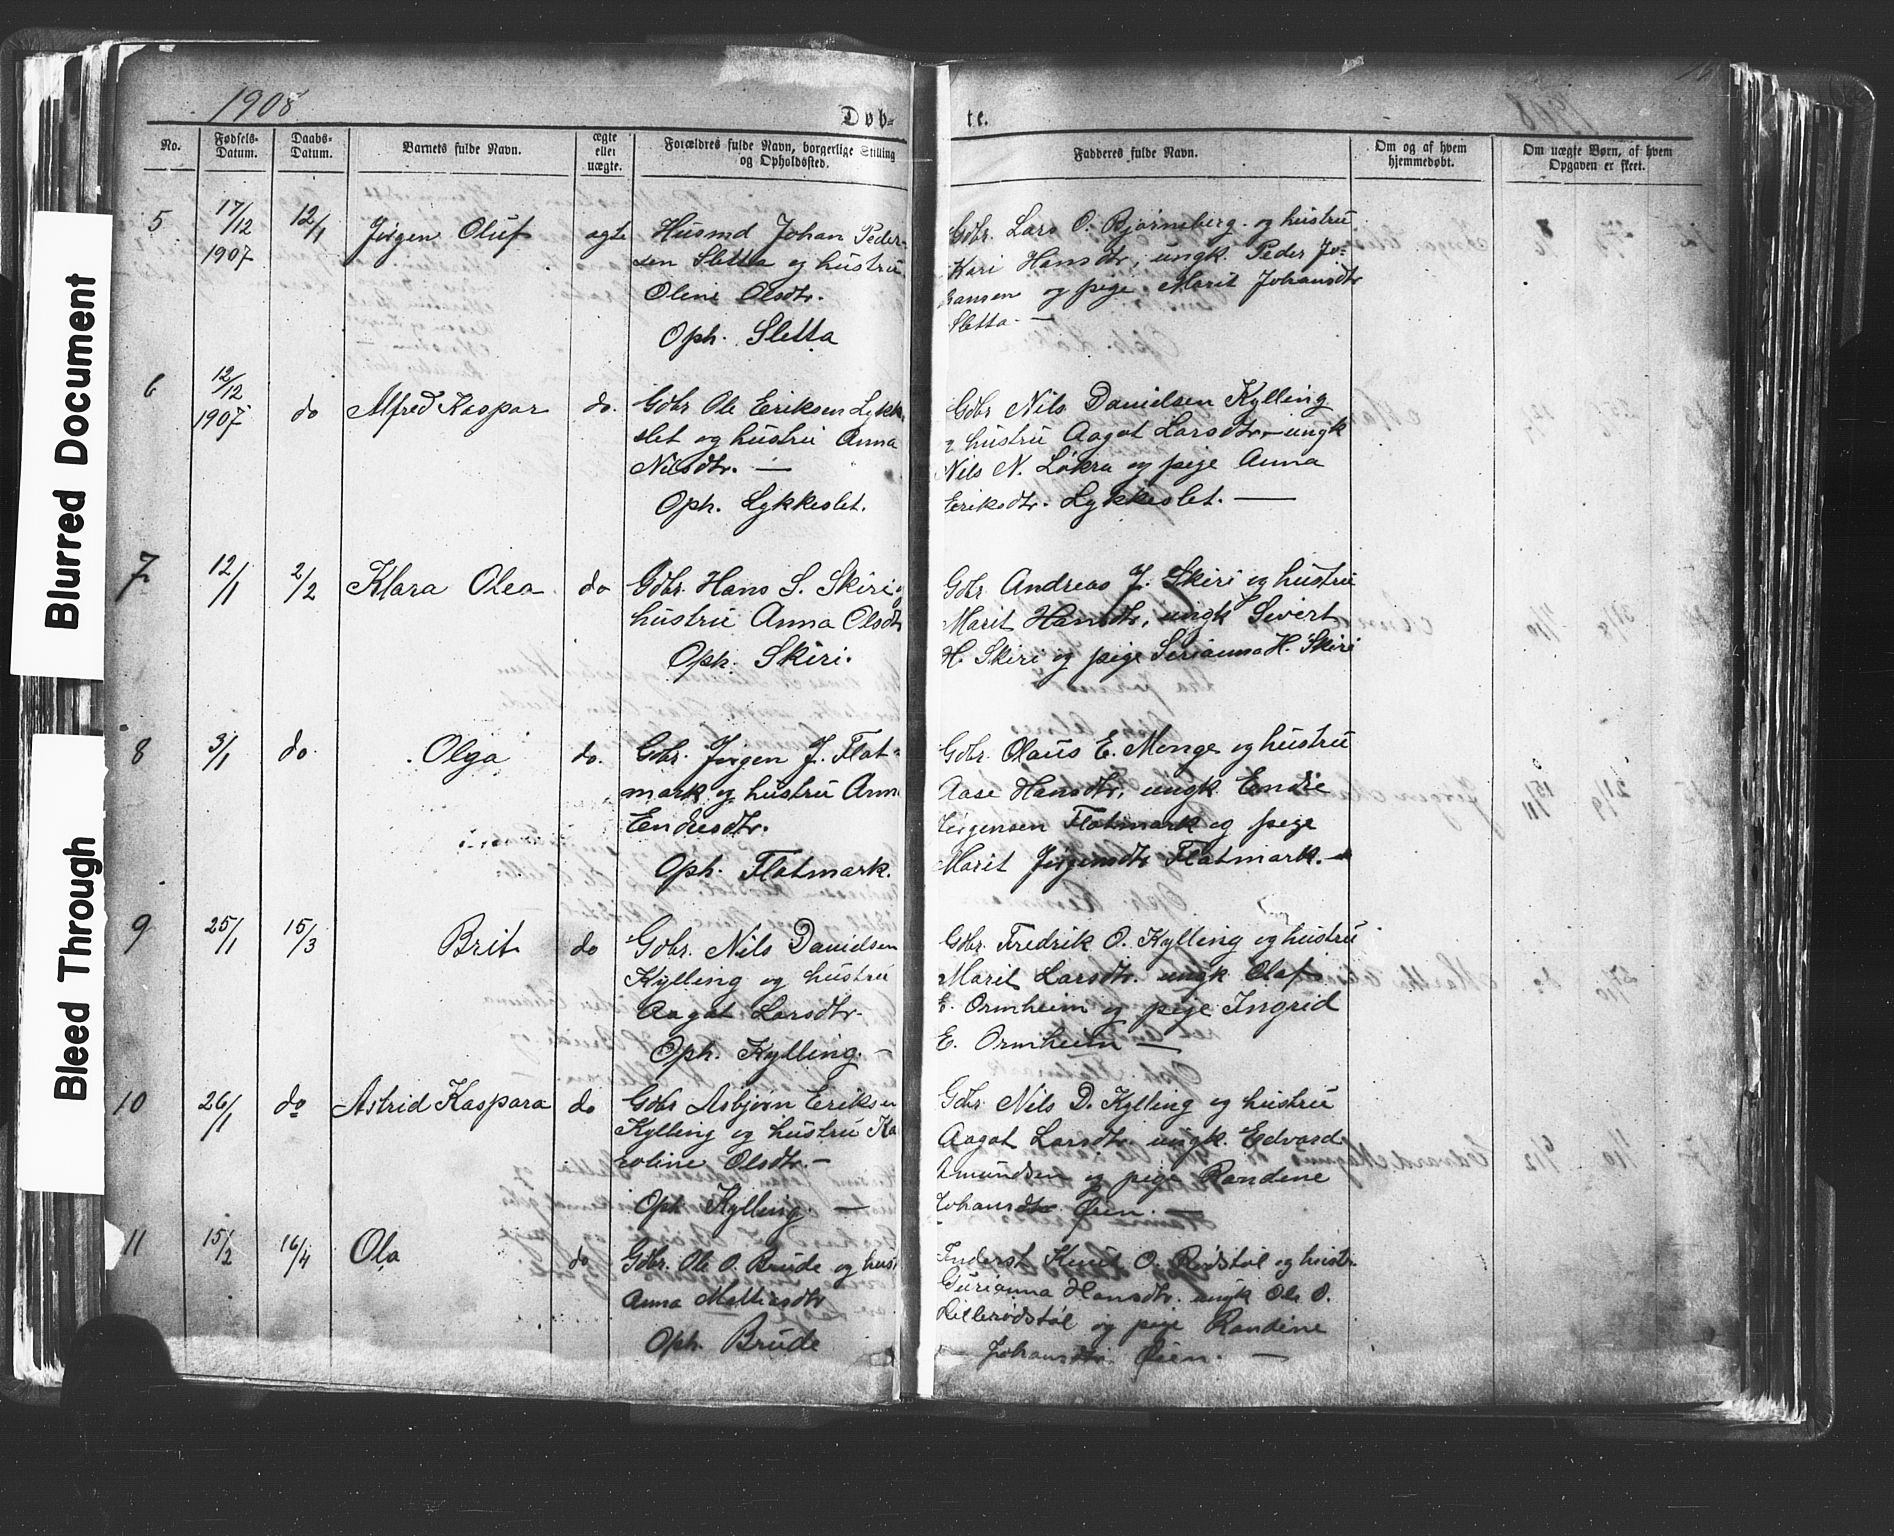 1908
Døb-
te.
1908
No.
Fødsels-
Datum.
Daabs-
Datum.
Barnets fulde Navn.
ægte
eller
uægte.
Forældres fulde Navn, borgerlige Stilling
og Opholdssted.
Fadderes fulde Navn.
Om og af hvem
hjemmedøbt.
Om uægte Børn, af hvem
Opgaven er skeet.
5
17/12
1907
12/1
Jørgen Oluf
ægte
Husmd Johan Peder-
sen Sletta og hustru
Oline Olsdtr.
Oph. Sletta
Gdbr. Lars O. Bjørnsberg og hustru
Kari Hansdtr, ungk. Peder Jo-
hansen og pige Marit Johansdtr
Sletta. —
6
12/12
1907
do
Alfred Kaspar
do.
Gdbr Ole Eriksen Lykk
slet og hustru Anna
Nilsdtr. —
Oph. Lykkeslet.
Gdbr Nils Danielsen Kylling
og hustru Aagot Larsdtr. ungk
Nils N. Løkra og pige Anna
Eriksdtr. Lykkeslet. —
7
12/1
2/2
Klara Olea
do
Gdbr. Hans S. Skiri og
hustru Anna Olsdtr
Oph. Skiri.
Gdbr Andreas J. Skiri og hustru
Marit Hansdtr, ungk Sivert
H. Skiri og pige Serianna H. Skiri
8
3/1
do.
Olga
do.
Gdbr. Jørgen J. Flat-
mark og hustru Anna
Endresdtr.
Oph. Flatmark.
Gdbr. Olaus E. Monge og hustru
Aase Hansdtr, ungk. Endre
Jørgensen Flatmark og pige
Marit Jørgensdtr Flatmark. —
9
25/1
15/3
Brit
do
Gdbr. Nils Danielsen
Kylling og hustru
Aagot Larsdtr.
Oph. Kylling. —
Gdbr. Fredrik O. Kylling og hustru
Marit Larsdtr. ungk Olaf
E. Ormheim og pige Ingrid
E. Ormheim —
10
26/1
do
Astrid Kaspara
do
Gdbr Asbjørn Eriksen
Kylling og hustru Ka
roline Olsdtr. —
Oph Kylling. —
Gdbr. Nils D. Kylling og hustru
Aagot Larsdtr. ungk. Edvard
Amundsen og pige Randine
Johansdtr Øien. —
11
15/2
16/4
Ola
do
Gdbr. Ole O. Brude og hust
Anna Mathiasdtr
Oph. Brude
Inderst Knut O. Rødstøl og hustr
Gurianna Hansdtr. ungk Ole O.
Lillerødstøl og pige Randine
Johansdtr. Øien. —
Blurred Document
Bleed Through